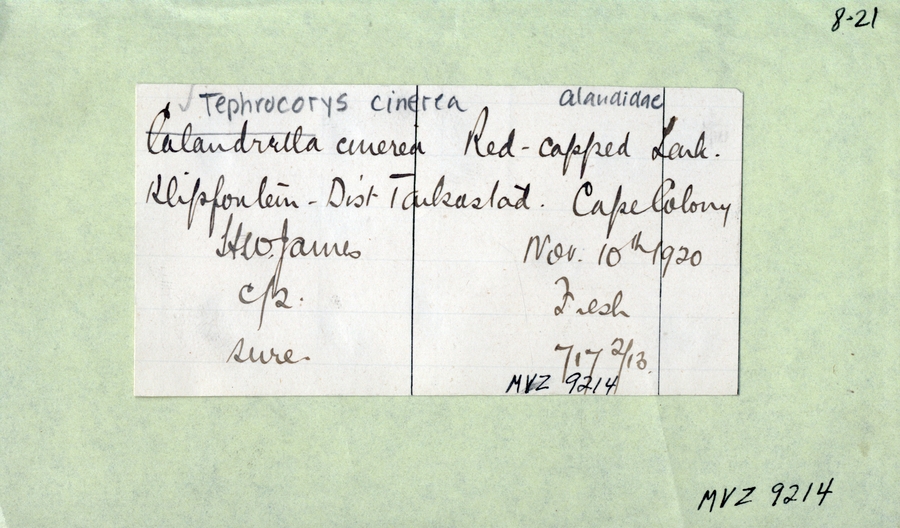 8-21
✓ Tephrocorys cinerea Alaudidae
Calandrella cinerea Red-capped Lark.
Klipfontein - Dist Tarkastad. Cape Colony
H.W. James Nov. 10th 1920
c/2. Fresh
sure. 717 2/13.
MVZ 9214
MVZ 9214